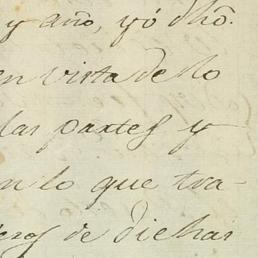 y año, yó dho.
en vista de lo
las partes y
n lo que tra-
de dichas